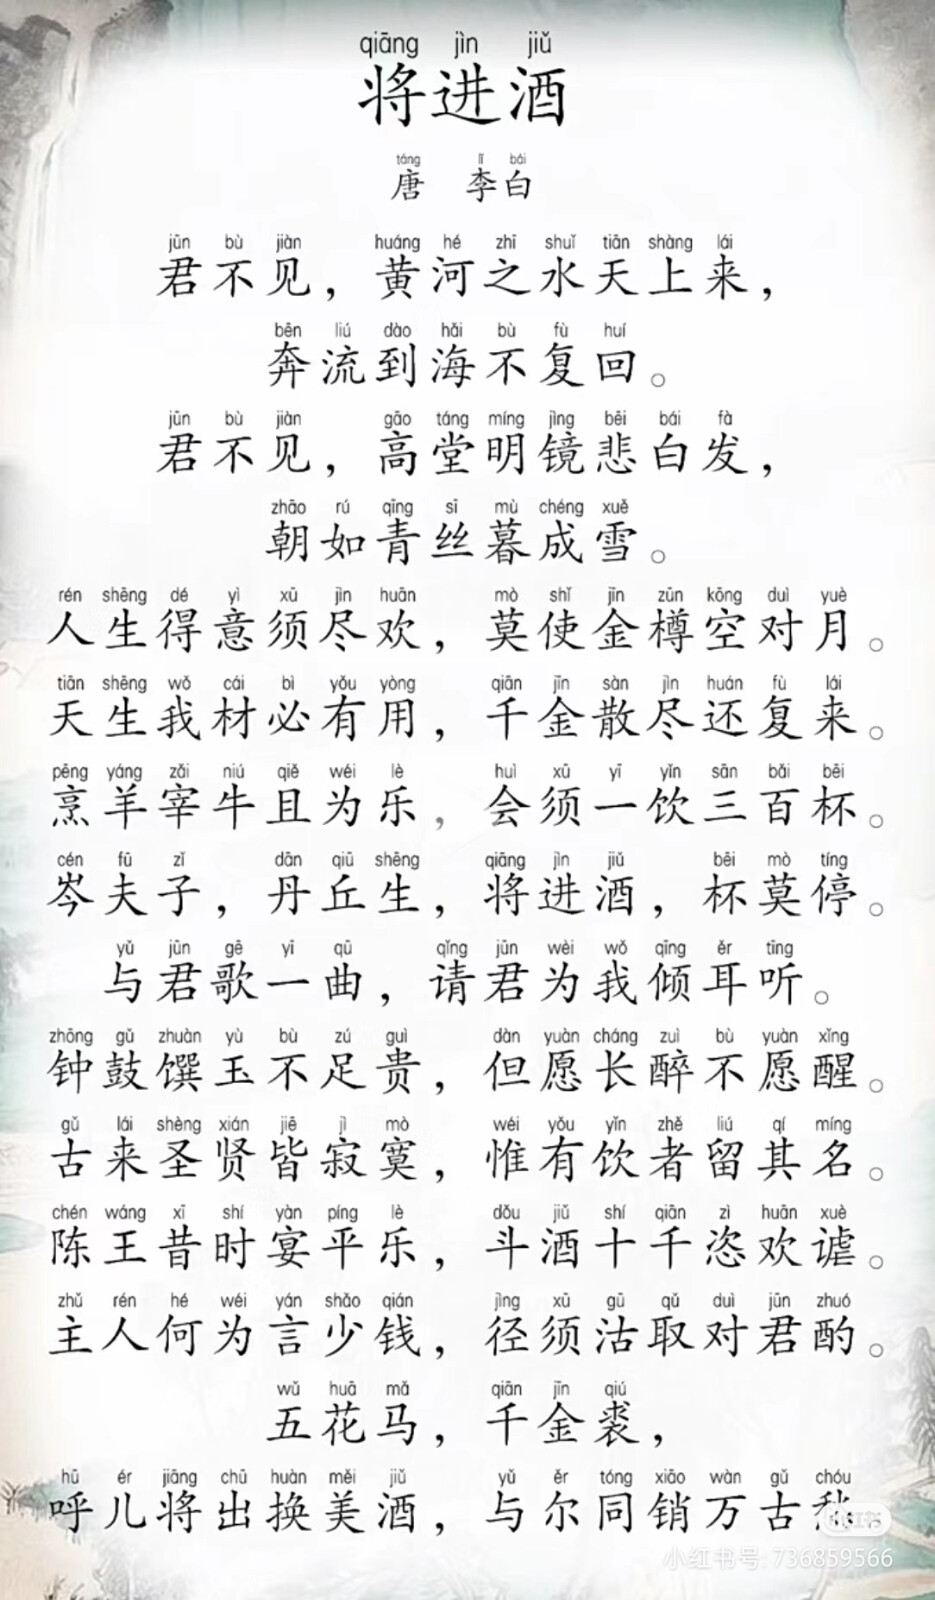 qiāng jìn jiǔ
将进酒
táng lǐ bái
唐 李白
jūn bù jiàn huáng hé zhī shuǐ tiān shàng lái
君不见，黄河之水天上来，
bēn liú dào hǎi bù fù huí
奔流到海不复回。
jūn bù jiàn gāo táng míng jìng bēi bái fà
君不见，高堂明镜悲白发，
zhāo rú qīng sī mù chéng xuě
朝如青丝暮成雪。
rén shēng dé yì xū jìn huān mò shǐ jīn zūn kōng duì yuè
人生得意须尽欢，莫使金樽空对月。
tiān shēng wǒ cái bì yǒu yòng qiān jīn sàn jìn huán fù lái
天生我材必有用，千金散尽还复来。
pēng yáng zǎi niú qiě wéi lè huì xū yī yǐn sān bǎi bēi
烹羊宰牛且为乐，会须一饮三百杯。
cén fū zǐ dān qiū shēng qiāng jìn jiǔ bēi mò tíng
岑夫子，丹丘生，将进酒，杯莫停。
yǔ jūn gē yī qū qǐng jūn wèi wǒ qīng ěr tīng
与君歌一曲，请君为我倾耳听。
zhōng gǔ zhuàn yù bù zú guì dàn yuàn cháng zuì bù yuàn xǐng
钟鼓馔玉不足贵，但愿长醉不愿醒。
gǔ lái shèng xián jiē jì mò wéi yǒu yǐn zhě liú qí míng
古来圣贤皆寂寞，惟有饮者留其名。
chén wáng xī shí yàn píng lè dǒu jiǔ shí qiān zì huān xuè
陈王昔时宴平乐，斗酒十千恣欢谑。
zhǔ rén hé wéi yán shǎo qián jìng xū gū qǔ duì jūn zhuó
主人何为言少钱，径须沽取对君酌。
wǔ huā mǎ qiān jīn qiú
五花马，千金裘，
hū ér jiāng chū huàn měi jiǔ yǔ ěr tóng xiāo wàn gǔ chóu
呼儿将出换美酒，与尔同销万古愁
小红书
小红书号: 736859566